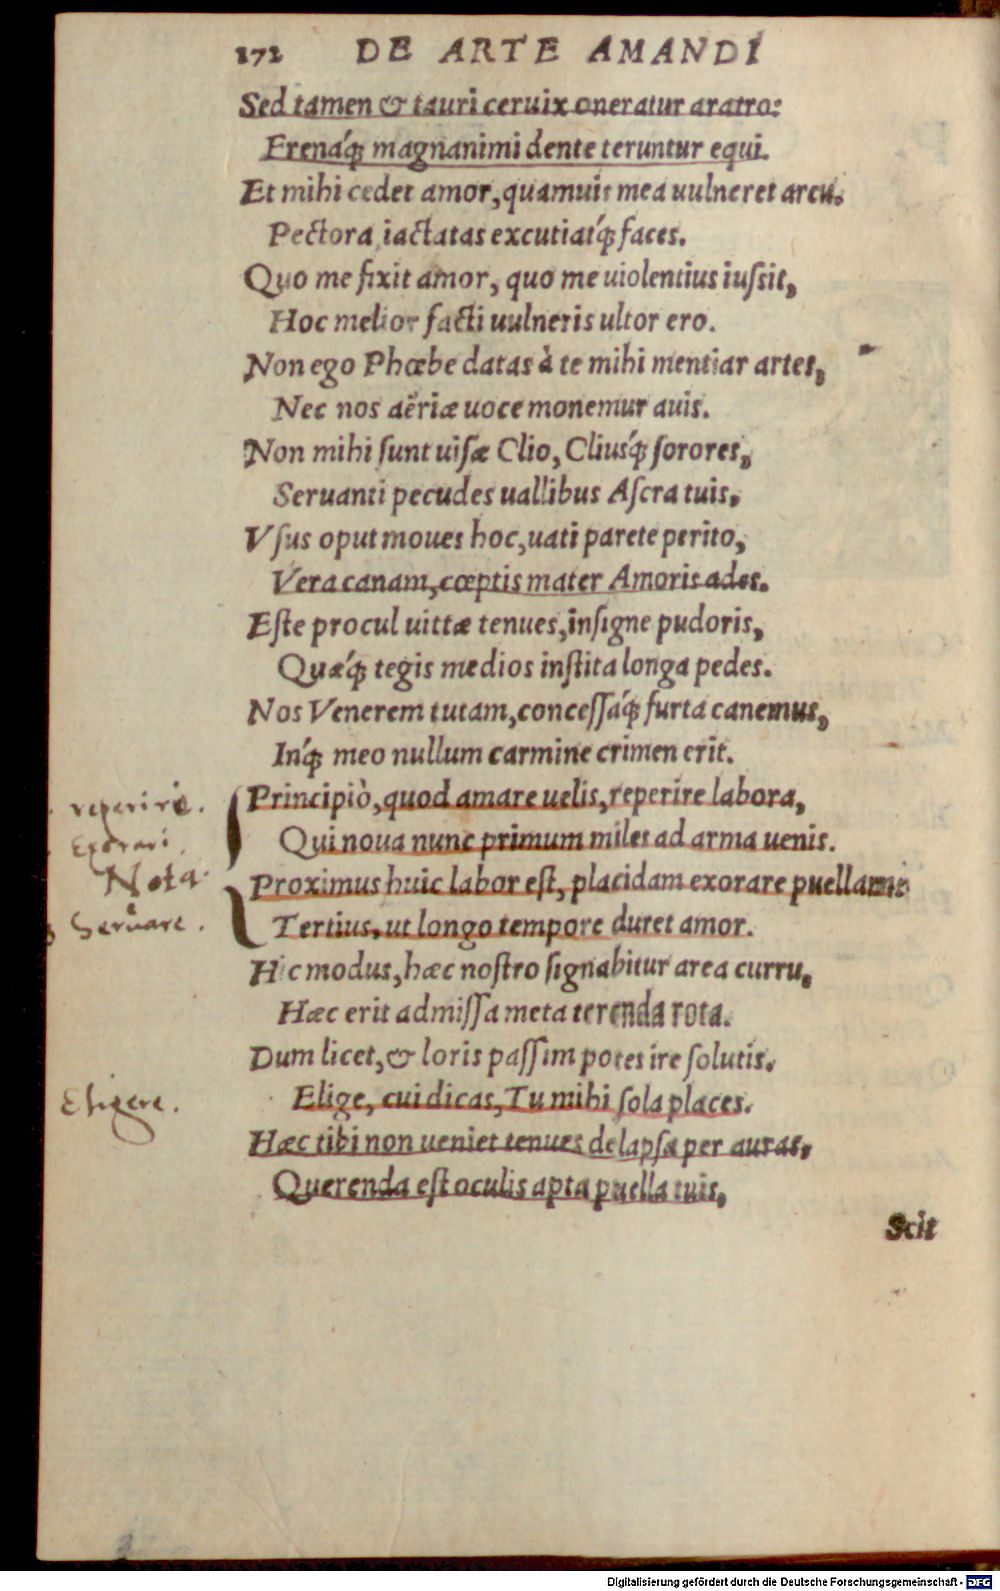 172 DE ARTE AMANDI
Sed tamen & tauri ceruix oneratur aratro:
Frenáq́; magnanimi dente teruntur equi.
Et mihi cedet amor, quamuis mea uulneret arcu.
Pectora iactatas excutiatq́; faces.
Quo me fixit amor, quo me uiolentius iuſsit,
Hoc melior facti uulneris ultor ero.
Non ego Phœbe datas à te mihi mentiar artes,
Nec nos aëriæ uoce monemur auis.
Non mihi ſunt uiſæ Clio, Cliusq́; ſorores,
Seruanti pecudes uallibus Aſcra tuis,
Vſus oput moues hoc, uati parete perito,
Vera canam, cœptis mater Amoris ades.
Eſte procul uittæ tenues, inſigne pudoris,
Quæq́; tegis medios inſtita longa pedes.
Nos Venerem tutam, conceſſáq́; furta canemus,
Inq́; meo nullum carmine crimen erit.
reperire.
Principiò, quod amare uelis, reperire labora,
Exorari.
Qui noua nunc primum miles ad arma uenis.
Nota.
Proximus huic labor eſt, placidam exorare puellam:
Seruare.
Tertius, ut longo tempore duret amor.
Hic modus, hæc noſtro ſignabitur area curru,
Hæc erit admiſſa meta terenda rota.
Dum licet, & loris paſſim potes ire ſolutis,
Eligere.
Elige, cui dicas, Tu mihi ſola places.
Hæc tibi non ueniet tenues delapſa per auras,
Querenda eſt oculis apta puella tuis,
Scit
Digitalisierung gefördert durch die Deutsche Forschungsgemeinschaft - DFG